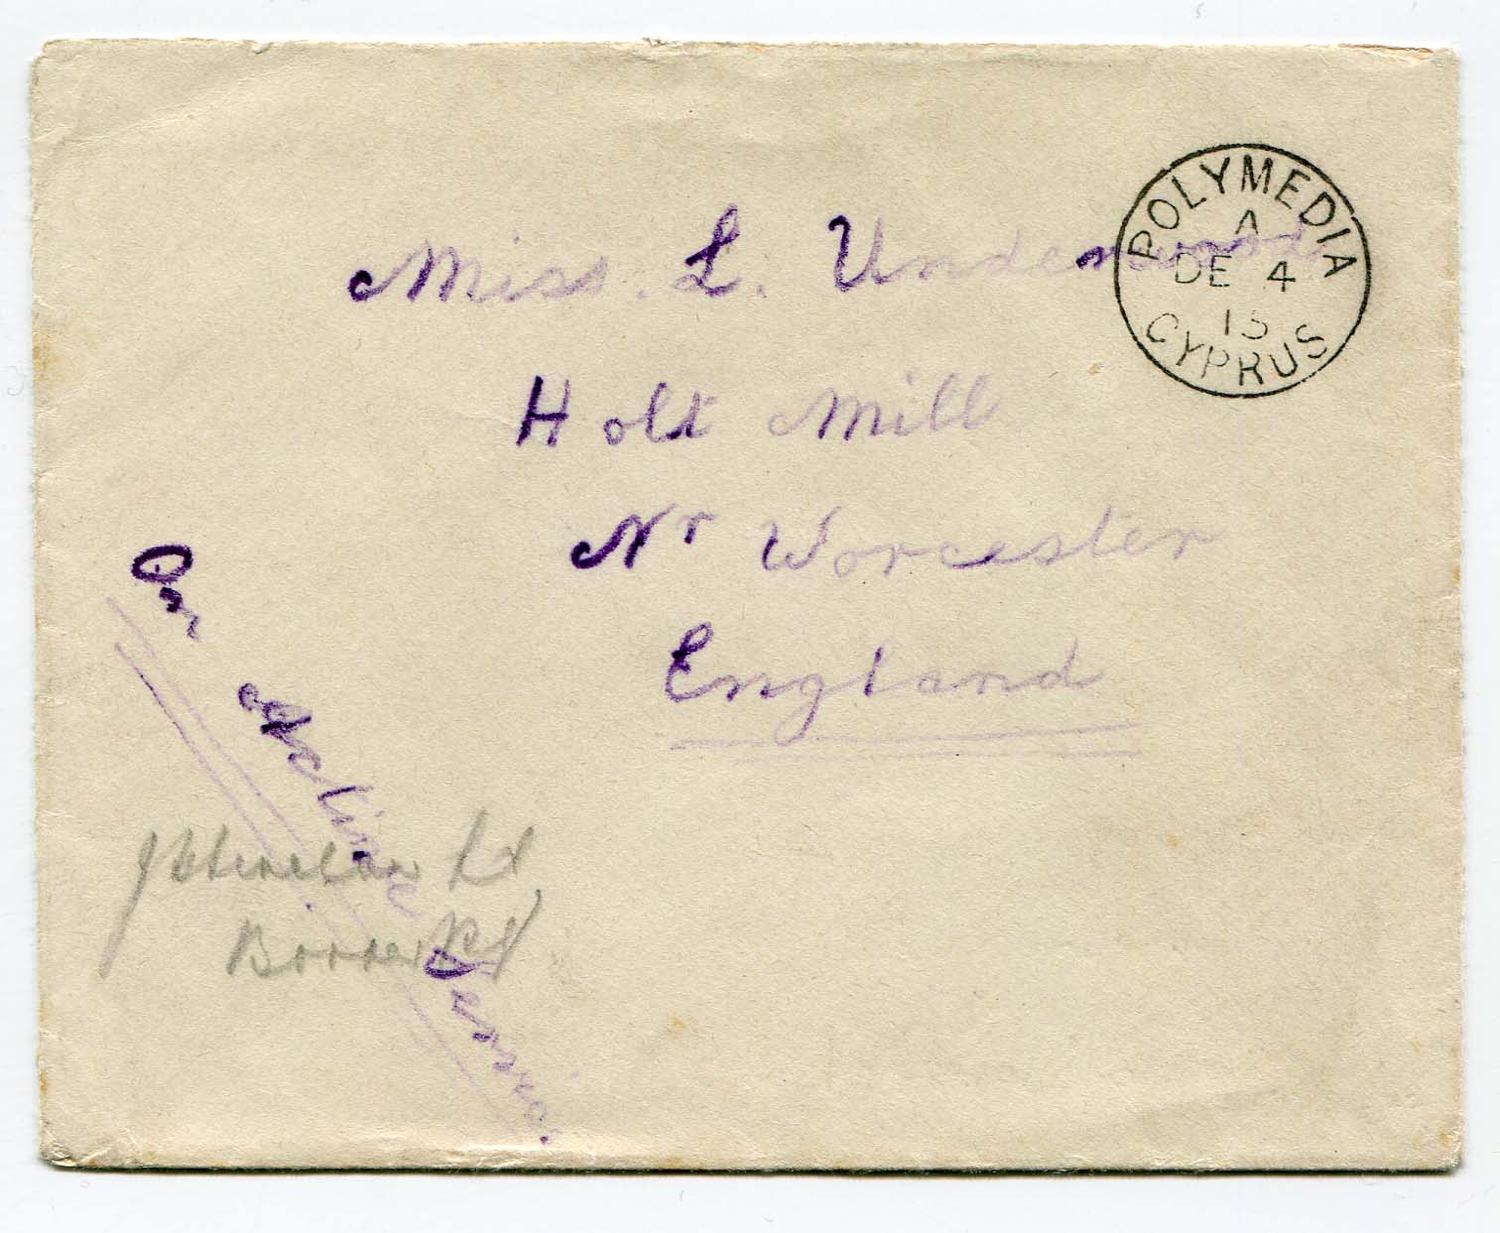 POLYMEDIA
A
DE 4
15
CYPRUS
Miss. L. Underwood
Holt Mill
Nr Worcester
England
On Active Service